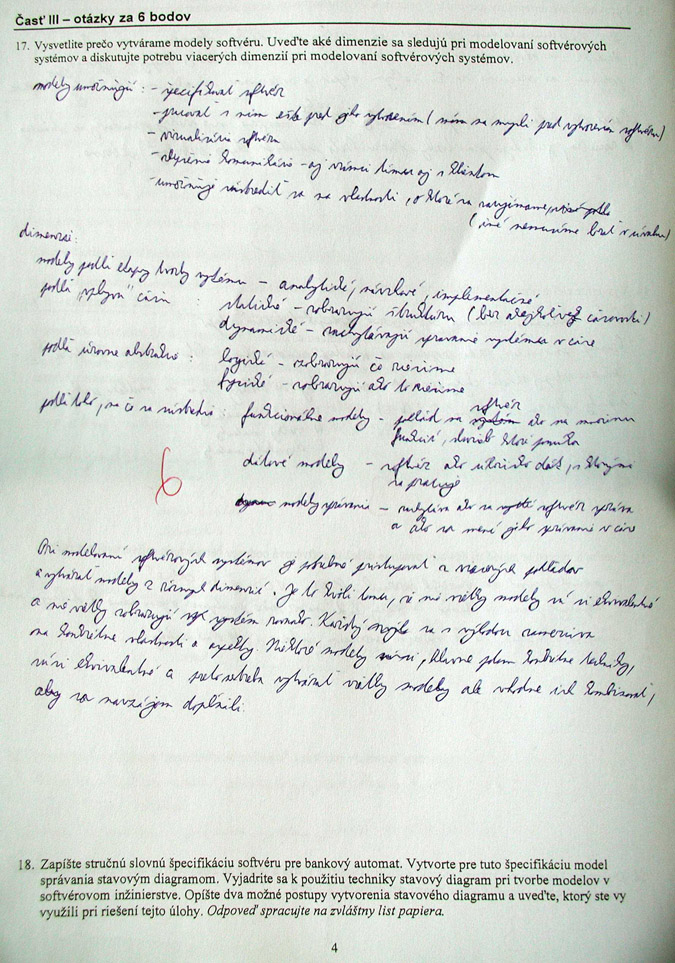 Časť III – otázky za 6 bodov
17. Vysvetlite prečo vytvárame modely softvéru. Uveďte aké dimenzie sa sledujú pri modelovaní softvérových
systémov a diskutujte potrebu viacerých dimenzií pri modelovaní softvérových systémov.
modely umožňujú : - špecifikovať softvér
- pracovať s ním ešte pred jeho vytvorením (
- vizualizáciu softvéru
komunikáciu - aj v rámci tímu aj s klientom
- umožňuje sústrediť sa na vlastnosti, o ktoré sa zaujímame,
(iné nemusíme brať v úvahu)
dimenzie:
modely podľa etapy tvorby systému - analytické, návrhové, implementačné
podľa "vplyvu" času : statické - zobrazujú štruktúru (bez časovosti)
dynamické - zachytávajú správanie systému v čase
podľa úrovne abstrakcie : logické - zobrazujú čo riešime
fyzické - zobrazujú ako to riešime
podľa toho, na čo sa sústredia : funkcionálne modely - pohľad na softvér ako na množinu
funkcií, ktoré ponúka
dátové modely - softvér ako dát, s ktorými
sa pracuje
modely správania - ako sa softvér správa
a ako sa mení jeho správanie v čase
6
Pri modelovaní softvérových systémov je potrebné pristupovať z viacerých pohľadov
a vytvárať modely z rôznych dimenzií. Je to kvôli tomu, že nie všetky modely sú si ekvivalentné
a nie všetky zobrazujú systém rovnako. Každý sa
na konkrétne vlastnosti a aspekty. Niektoré modely
sú si ekvivalentné a vytvárať všetky modely ale vhodne ich kombinovať,
aby sa navzájom doplnili.
18. Zapíšte stručnú slovnú špecifikáciu softvéru pre bankový automat. Vytvorte pre tuto špecifikáciu model
správania stavovým diagramom. Vyjadrite sa k použitiu techniky stavový diagram pri tvorbe modelov v
softvérovom inžinierstve. Opíšte dva možné postupy vytvorenia stavového diagramu a uveďte, ktorý ste vy
využili pri riešení tejto úlohy. Odpoveď spracujte na zvláštny list papiera.
4